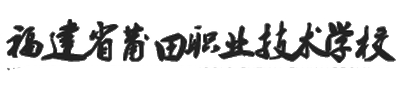 福建省莆田职业技术学校